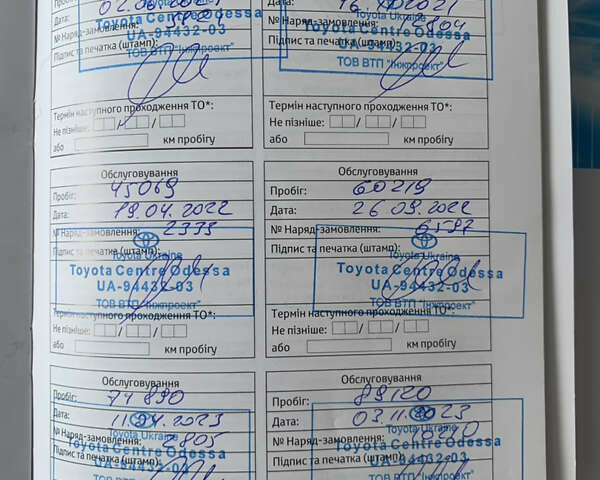 Пробіг
Дата:
№ Наряд-замовлення:
Toyota Centre Odessa
UA-94432-03
Підпис та печатка (штамп):
ТОВ ВТП "Інжпроект"
Термін наступного проходження ТО*:
Не пізніше: / /
або км пробігу
Toyota Ukraine
Toyota Centre Odessa
UA-94432-03
Підпис та печатка (штамп):
ТОВ ВТП "Інжпроект"
Термін наступного проходження ТО*:
Не пізніше: / /
або км пробігу
Обслуговування
Пробіг: 45069
Дата: 19.04.2022
№ Наряд-замовлення: 2339
Підпис та печатка (штамп):
Toyota Ukraine
Toyota Centre Odessa
UA-94432-03
ТОВ ВТП "Інжпроект"
Термін наступного проходження ТО*:
Не пізніше: / /
або км пробігу
Обслуговування
Пробіг: 60219
Дата: 26.09.2022
№ Наряд-замовлення: 6597
Підпис та печатка (штамп):
Toyota Ukraine
Toyota Centre Odessa
UA-94432-03
ТОВ ВТП "Інжпроект"
Термін наступного проходження ТО*:
Не пізніше: / /
або км пробігу
Обслуговування
Пробіг: 74890
Дата: 11.04.2023
№ Наряд-замовлення: 2805
Toyota Ukraine
Toyota Centre Odessa
Підпис та печатка (штамп):
UA-94432-03
ТОВ ВТП "Інжпроект"
Обслуговування
Пробіг: 89120
Дата: 03.11.2023
№ Наряд-замовлення:
Toyota Ukraine
Toyota Centre Odessa
Підпис та печатка (штамп):
UA-94432-03
ТОВ ВТП "Інжпроект"